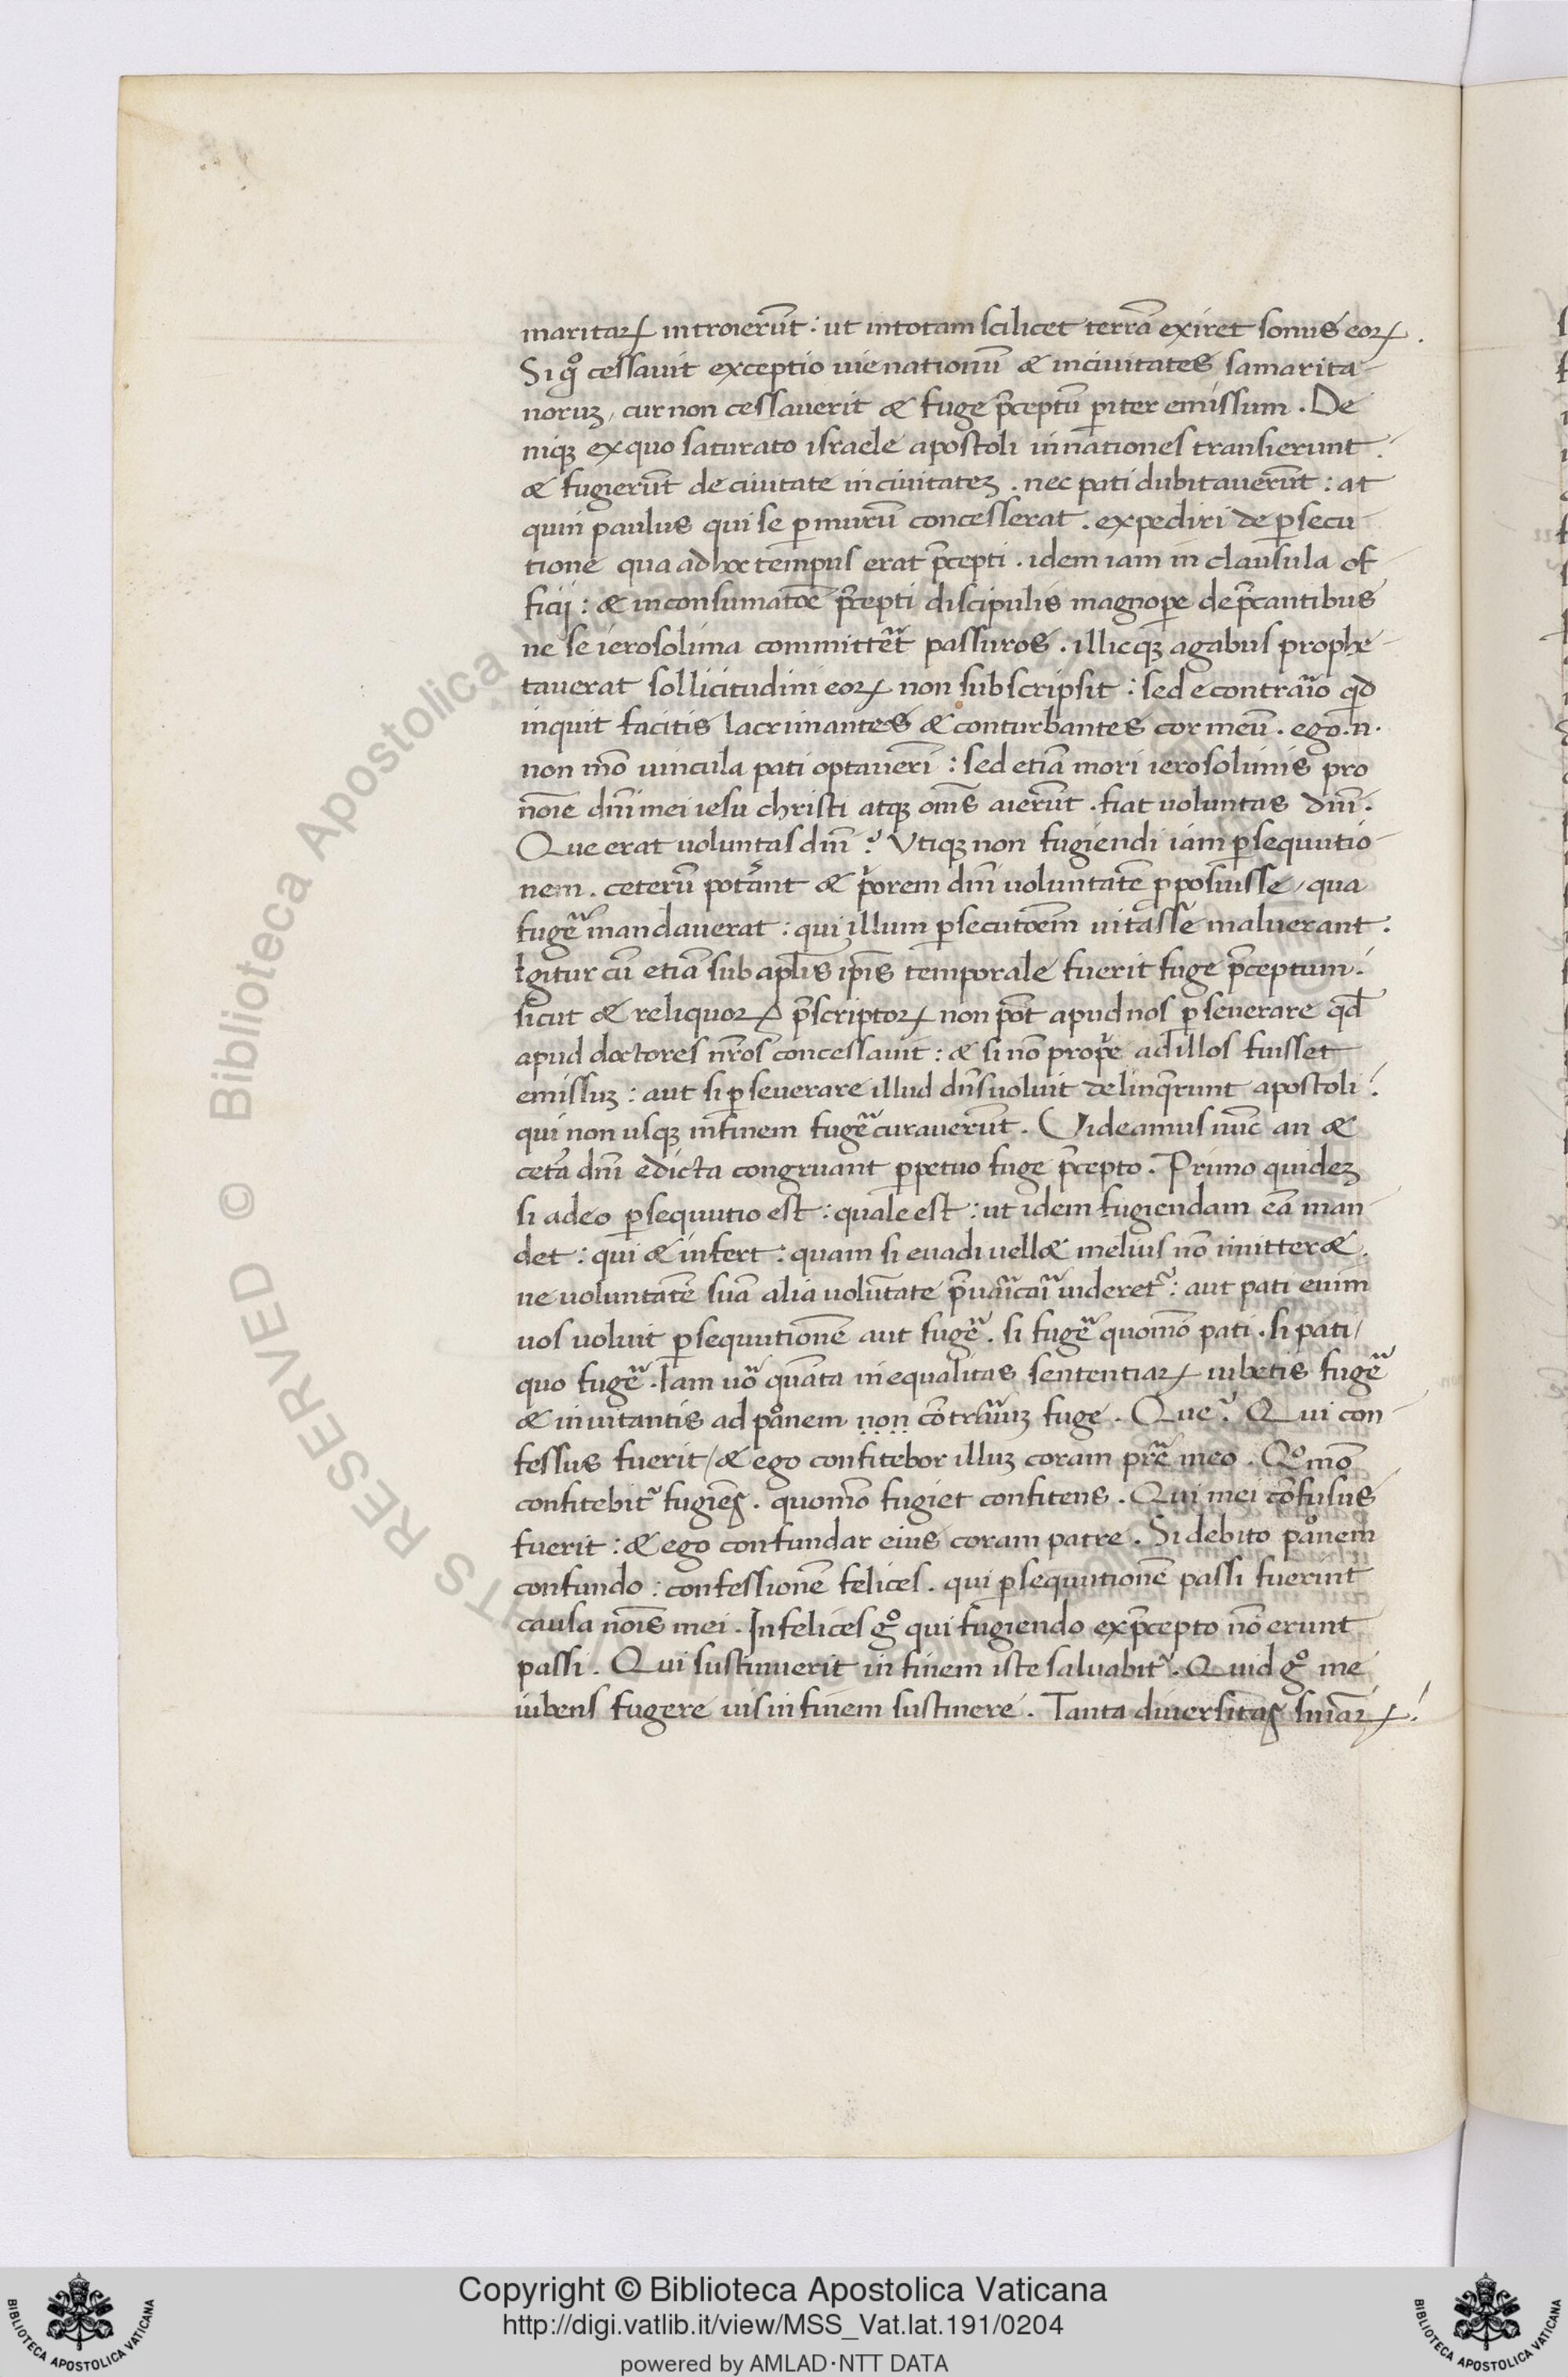 maritaꝝ introierūt: ut in totam scilicet terrā exiret sonus eoꝝ.
Si gͦ cessauit exceptio uie nationū & in ciuitates samarita-
noruꝫ, cur non cessauerit & fuge p̄ceptū ꝑiter emissum. De
niqꝫ ex quo saturato israele apostoli in nationes transierunt.
& fugierūt de ciuitate in ciuitateꝫ. nec pati dubitauerūt: at
quin paulus qui se ꝑ murū concesserat. expediri de ꝑsecu
tione qua ad hoc tempus erat p̄cepti. idem iam in clausula of
ficij: & in consumatōe p̄cepti discipulis magnoꝑe dep̄cantibus
ne se ierosolima committe᷒t passuros. illicqꝫ agabus prophe-
tauerat sollicitudini eoꝝ non subscripsit: sed e contrāio qd
inquit facitis lacrimantes & conturbantes cor meū. ego.n.
non mō uincula pati optauerī: sed etiā mori ierosolimis pro
noīe dnī mei iesu christi atqꝫ om̄s aierūt. fiat uoluntas dnī.
Que erat uoluntas dnī? Utiqꝫ non fugiendi iam ꝑsequutio-
nem. ceterū potāͥnt & pͥorem dnī uoluntatē ꝓposuisse, qua
fugē mandauerat: qui illum ꝑsecutōem uitasse maluerant.
Igitur cū etiā sub apl̄is ip̄is temporale fuerit fuge p̄ceptum.
sicut & reliquoꝝ p̄scriptoꝝ non pōt apud nos ꝑseuerare qd̄
apud doctores nr̄os concessauit: & si nō propͥe ad illos fuisset
emissuꝫ: aut si ꝑseuerare illud dn̄s uoluit delinq̄runt apostoli.
qui non usqꝫ in finem fugē curauerūt. Uideamus nūc an &
cetā dnī edicta congruant ꝑpetuo fuge p̄cepto. Primo quideꝫ
si adeo ꝑsequutio est: quale est: ut idem fugiendam eā man-
det: qui & infert: quam si euadi uell& melius nō īmitter&.
ne uoluntatē suā alia uolūtate p̄uāicaī uideret᷑: aut pati enim
uos uoluit ꝑsequutionē aut fugē. si fugē quomō pati. si pati,
quo fugē. Iam uō quāta inequalitas sententiaꝝ iubetis fugē
& inuitantis ad pͦānem non cōtrāiuꝫ fuge. Que? Qui con-
fessus fuerit, & ego confitebor illuꝫ coram prē meo. Qͦmō
confitebit᷑ fugiēs. quomō fugiet confitens. Qui mei cōfusus
fuerit: & ego confundar eius coram patre. Si debito pͣōnem
confundo: confessionē felices. qui ꝑsequutionē passi fuerint
causa noīs mei. Infelices gͦ qui fugiendo ex p̄cepto nō erunt
passi. Qui sustinuerit in finem iste saluabit᷑. Quid gͦ me
iubens fugere uis in finem sustinere. Tanta diuersitas sn̄iaꝝ.
Copyright © Biblioteca Apostolica Vaticana
http://digi.vatlib.it/view/MSS_Vat.lat.191/0204
powered by AMLAD·NTT DATA